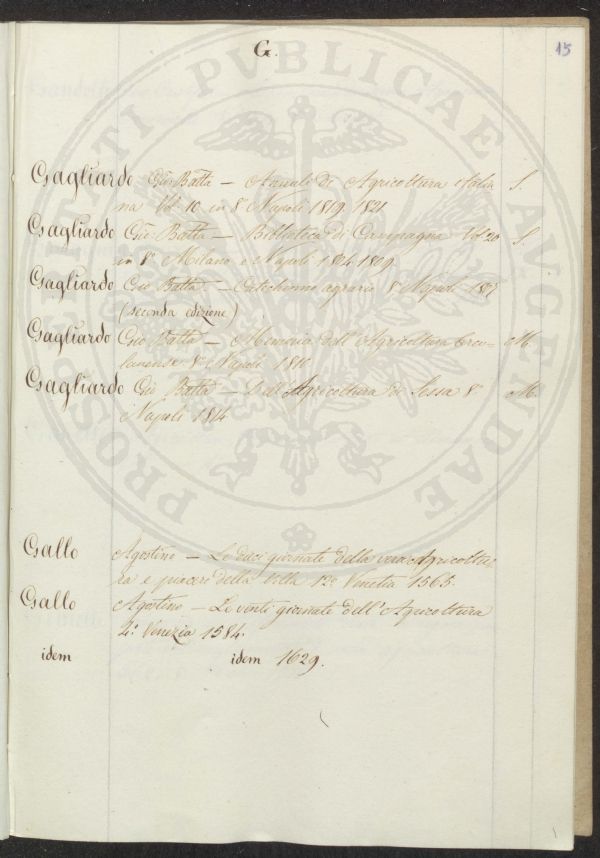 G.
15
Gagliardo Gio: Batta – Annali di Agricoltura italia S.
na Vol: 10 in 8° Napoli 1819. 1821
Gagliardo Gio: Batta – Biblioteca di Campagna Vol 20 S.
in 8° Milano e Napoli 1804 1809
Gagliardo Gio Batta – Catechismo agrario 8° Napoli 1807
(seconda edizione)
Gagliardo Gio Batta – Memoria dell'Agricoltura Ercu= M.
lanense 8° Napoli 1810
Gagliardo Gio Batta – Dell'Agricoltura di Sessa 8° M.
Napoli 1814
Gallo Agostino – Le dieci giornate della vera Agricoltu
ra e piaceri della Villa 12° Venetia 1565.
Gallo Agostino – Le venti giornate dell'Agricoltura
4° Venezia 1584.
idem idem 1629.
PROSPERITATI PVBLICAE AVGENDAE